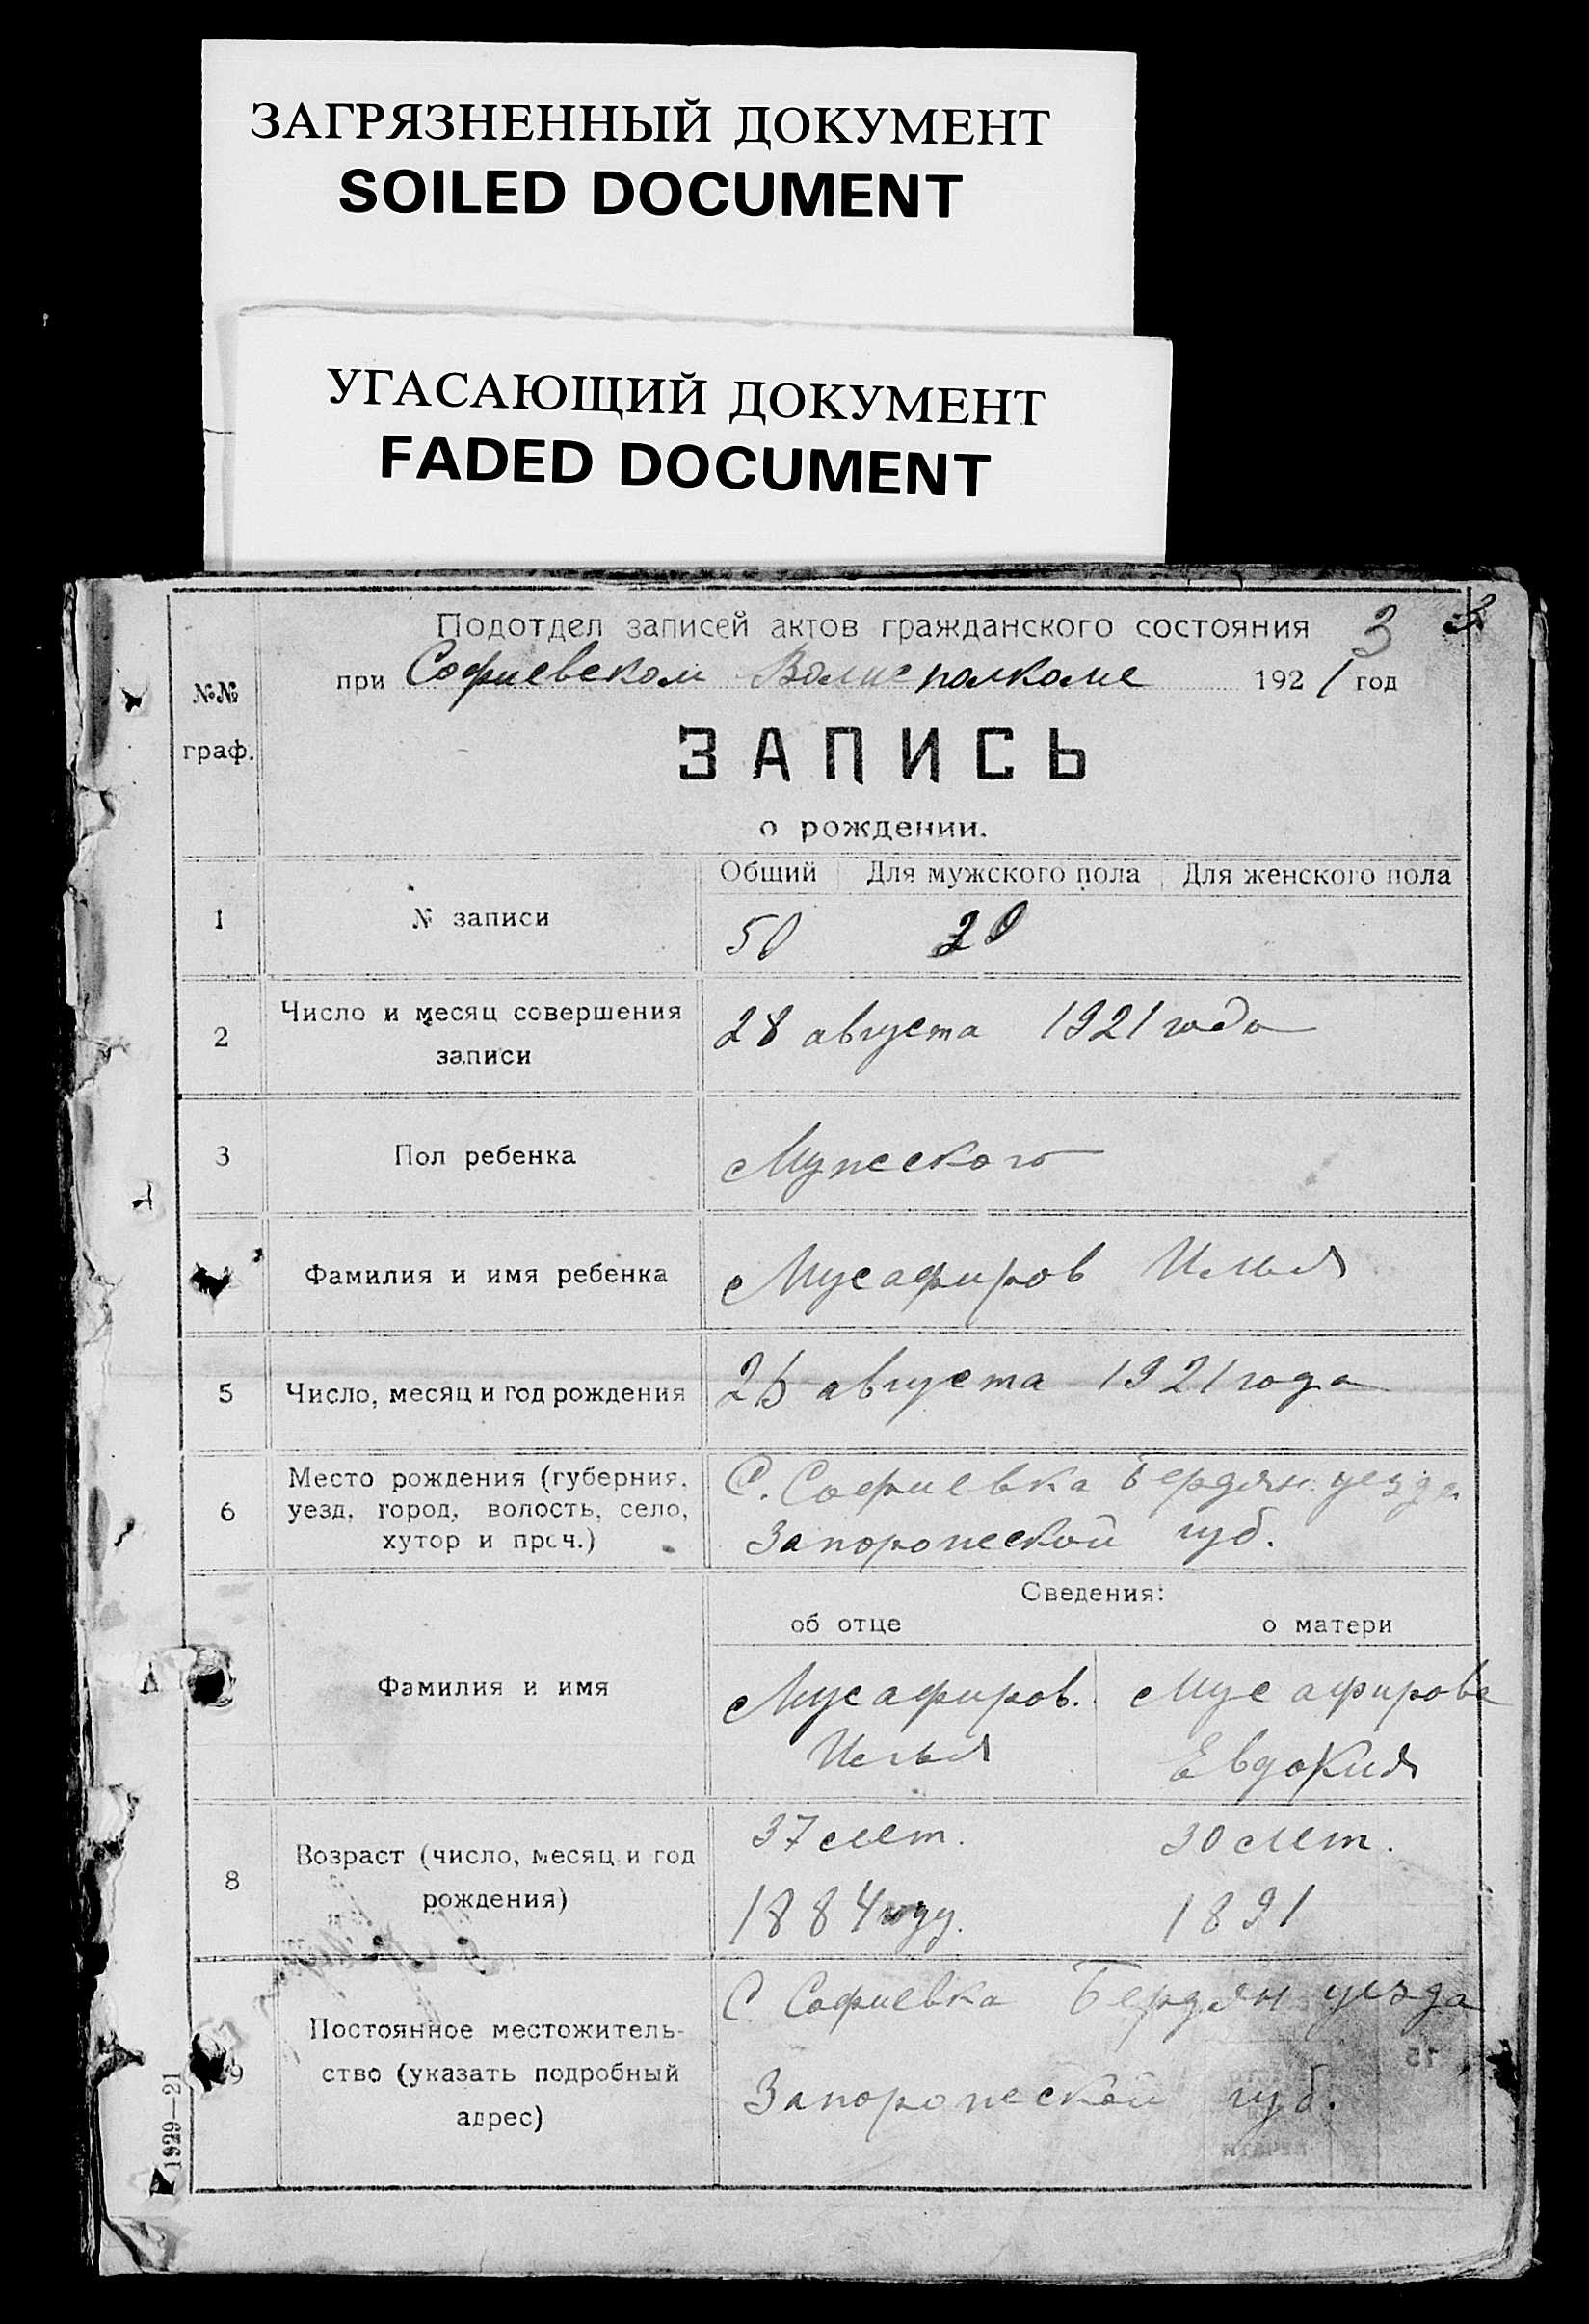 ЗАГРЯЗНЕННЫЙ ДОКУМЕНТ
SOILED DOCUMENT
УГАСАЮЩИЙ ДОКУМЕНТ
FADED DOCUMENT
Подотдел записей актов гражданского состояния 3
при Софиевском Волисполкоме 1921 год
№№ граф.
ЗАПИСЬ
о рождении.
Общий Для мужского пола Для женского пола
1 № записи 50 20
2 Число и месяц совершения 28 августа 1921 года
записи
3 Пол ребенка Мужского
Фамилия и имя ребенка Мусафиров Илья
5 Число, месяц и год рождения августа 1921 года
Место рождения (губерния, С. Софиевка Бердян. уезда
6 уезд, город, волость, село, Запорожской губ.
хутор и проч.)
Сведения:
об отце о матери
Фамилия и имя Мусафиров. Мусафирова
Илья Евдокия
8 Возраст (число, месяц и год 37 лет. 30 лет.
рождения) 1884 году. 1891
С. Софиевка Бердян уезда
Постоянное местожитель-
9 ство (указать подробный Запорожской губ.
адрес)
1929—21